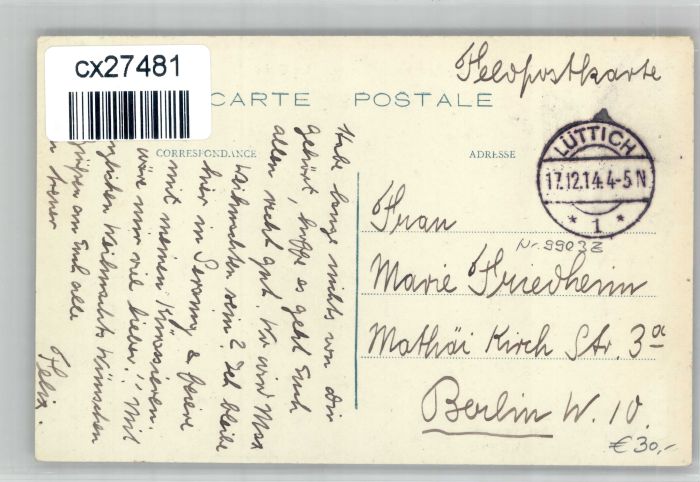 cx27481
Feldpostkarte
CARTE POSTALE
CORRESPONDANCE
ADRESSE
LÜTTICH
17.12.14.4-5 N
* 1 *
Frau
Nr. 99032
Marie Friedheim
Mathäi Kirch Str. 3a
Berlin W. 10.
€ 30,-
Habe lange nichts von Dir
gehört, hoffe es geht Euch
allen recht gut. Wo wird Max
Weihnachten sein? Ich bleibe
hier in & feiere
mit meinen Kürassieren.
wäre mir viel lieber!! Mit
Weihnachts Wünschen
Grüßen an Euch alle
treuer
Felix.